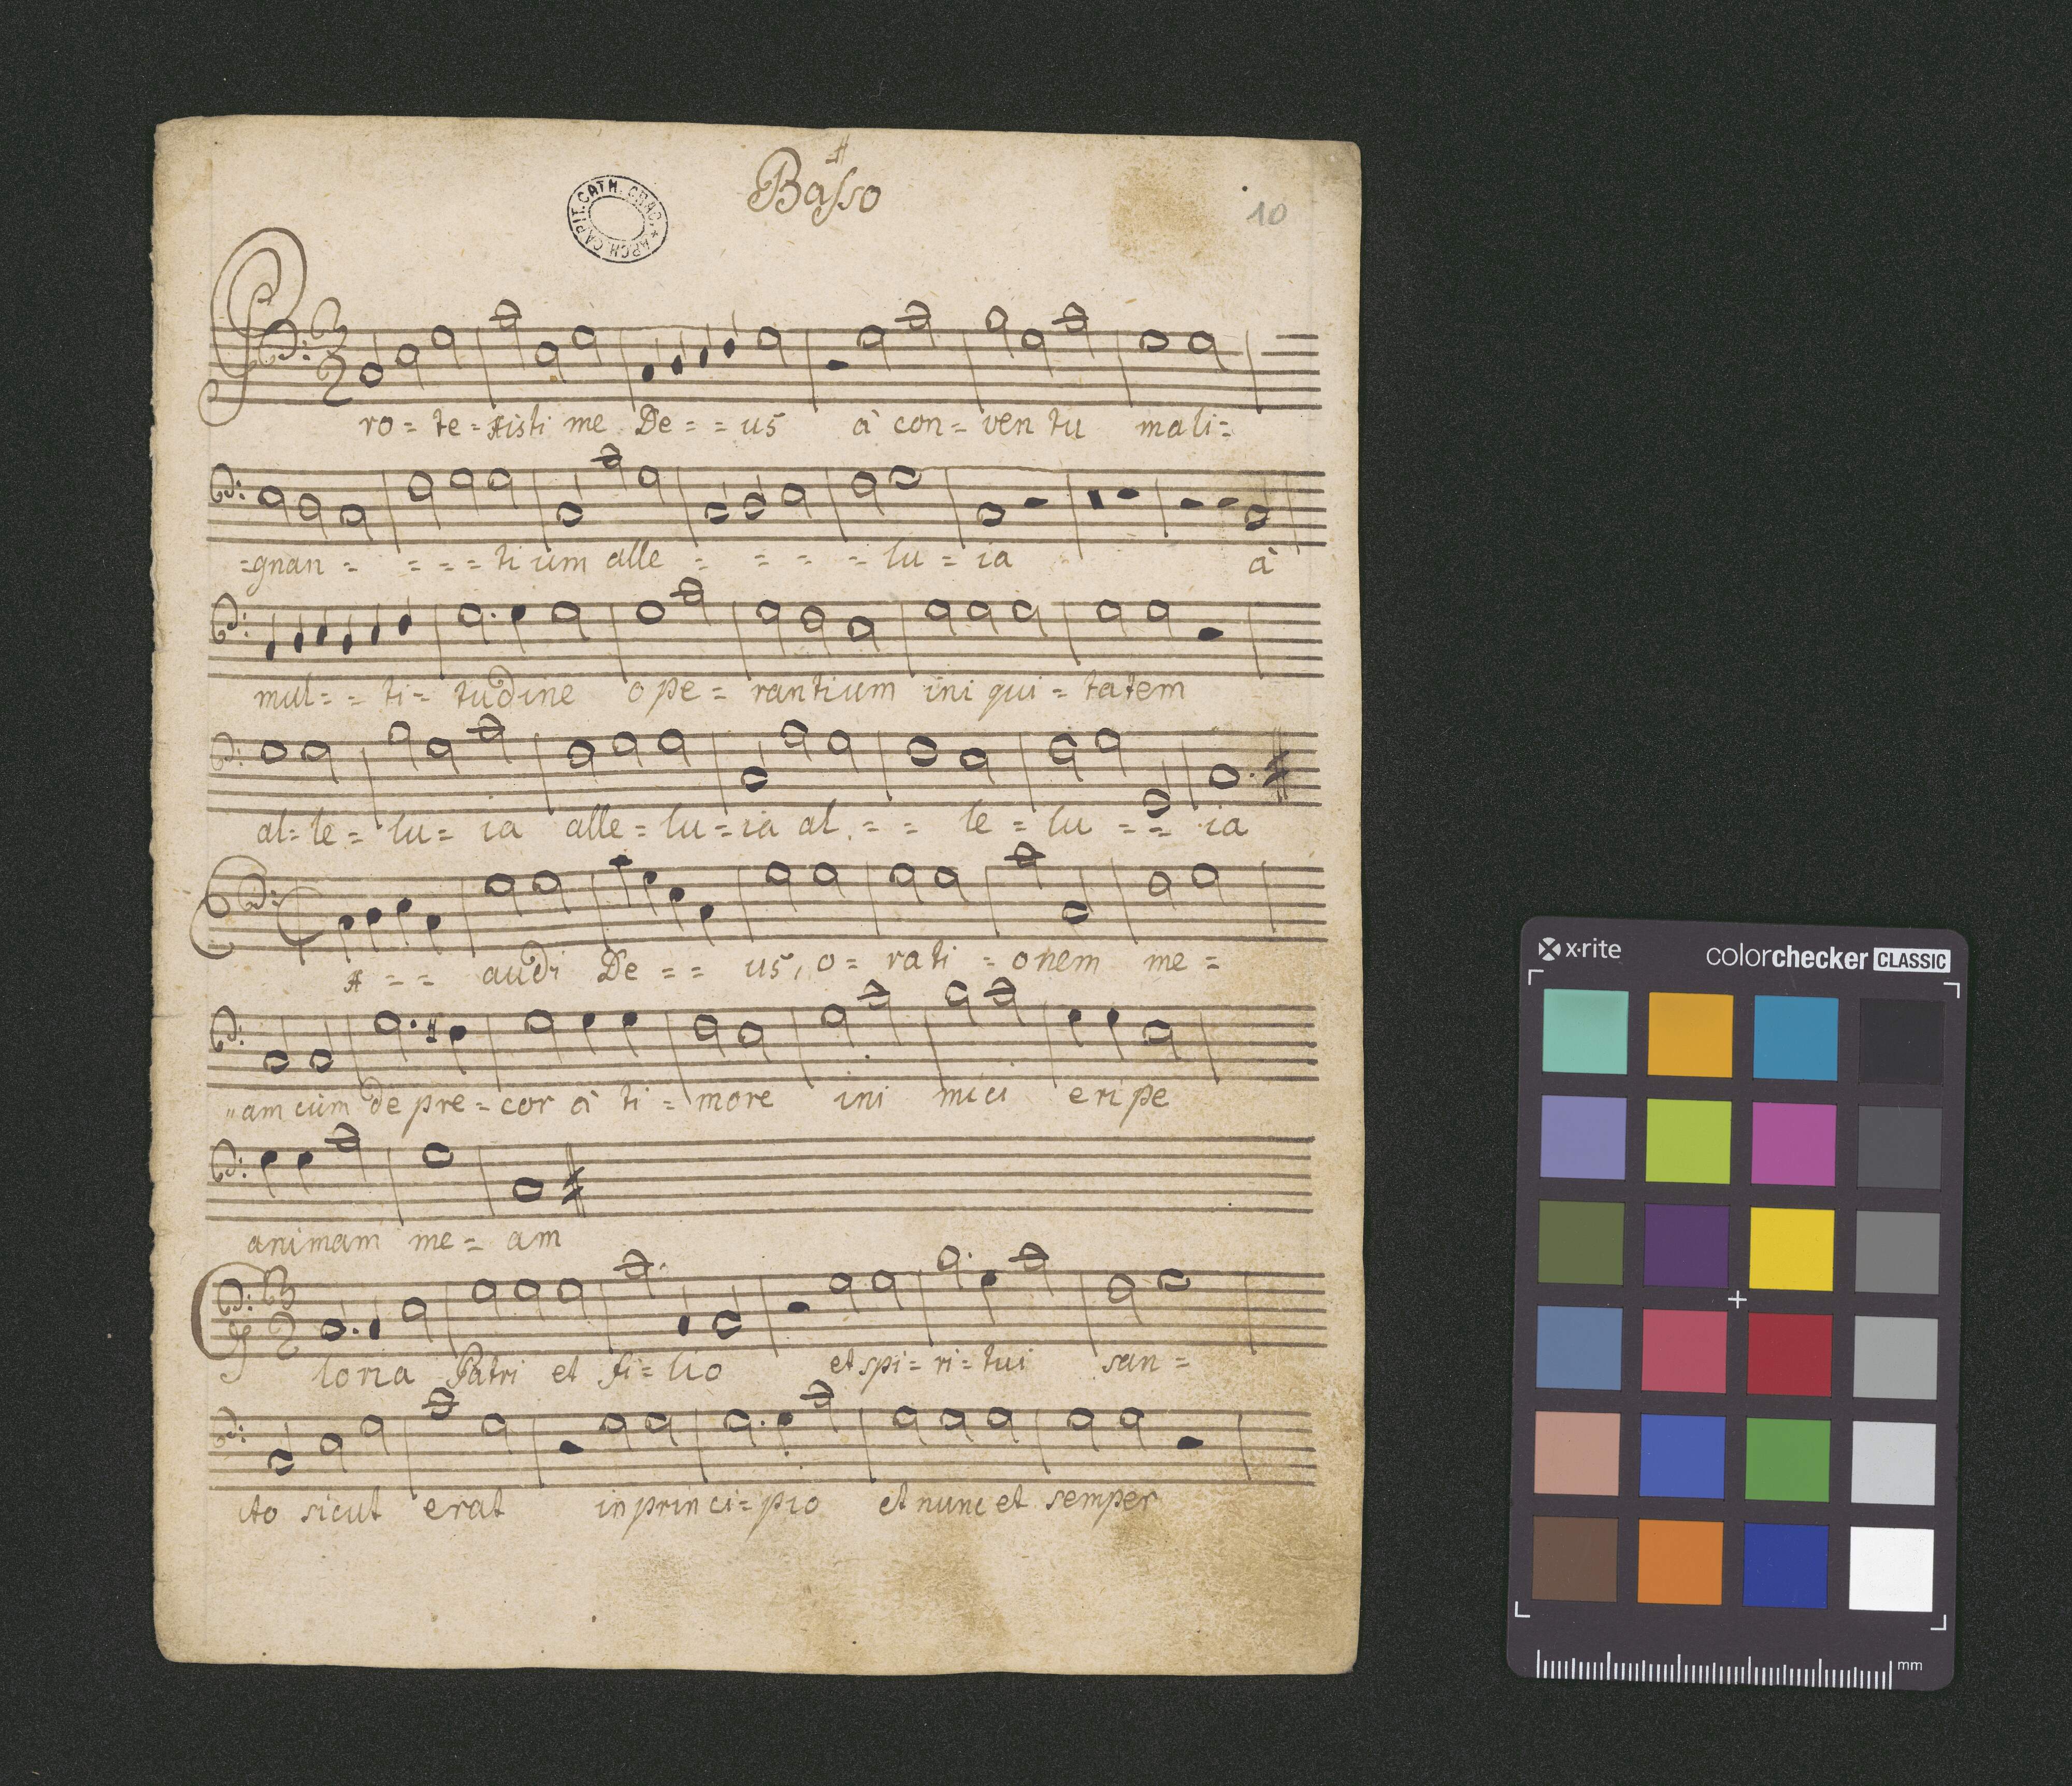 Basso
ARCH. CAPIT. CATH. CRAC.
10
Pro = te = xisti me De = = us à con = ven tu mali =
= gnan = = = = ti um alle = = = = lu = ia à
mul = = ti = tudine ope = rantium ini qui = tatem
al = le = lu = ia alle = lu = ia al = = le = lu = = ia
Ex = = audi De = = us, o = rati = onem me =
"am cùm depre = cor à ti = more ini mici eripe
animam me = am
Gloria Patri et fi = lio et spi = ri = tui san =
cto sicut erat in prin ci = pio et nunc et semper
x·rite colorchecker CLASSIC
mm